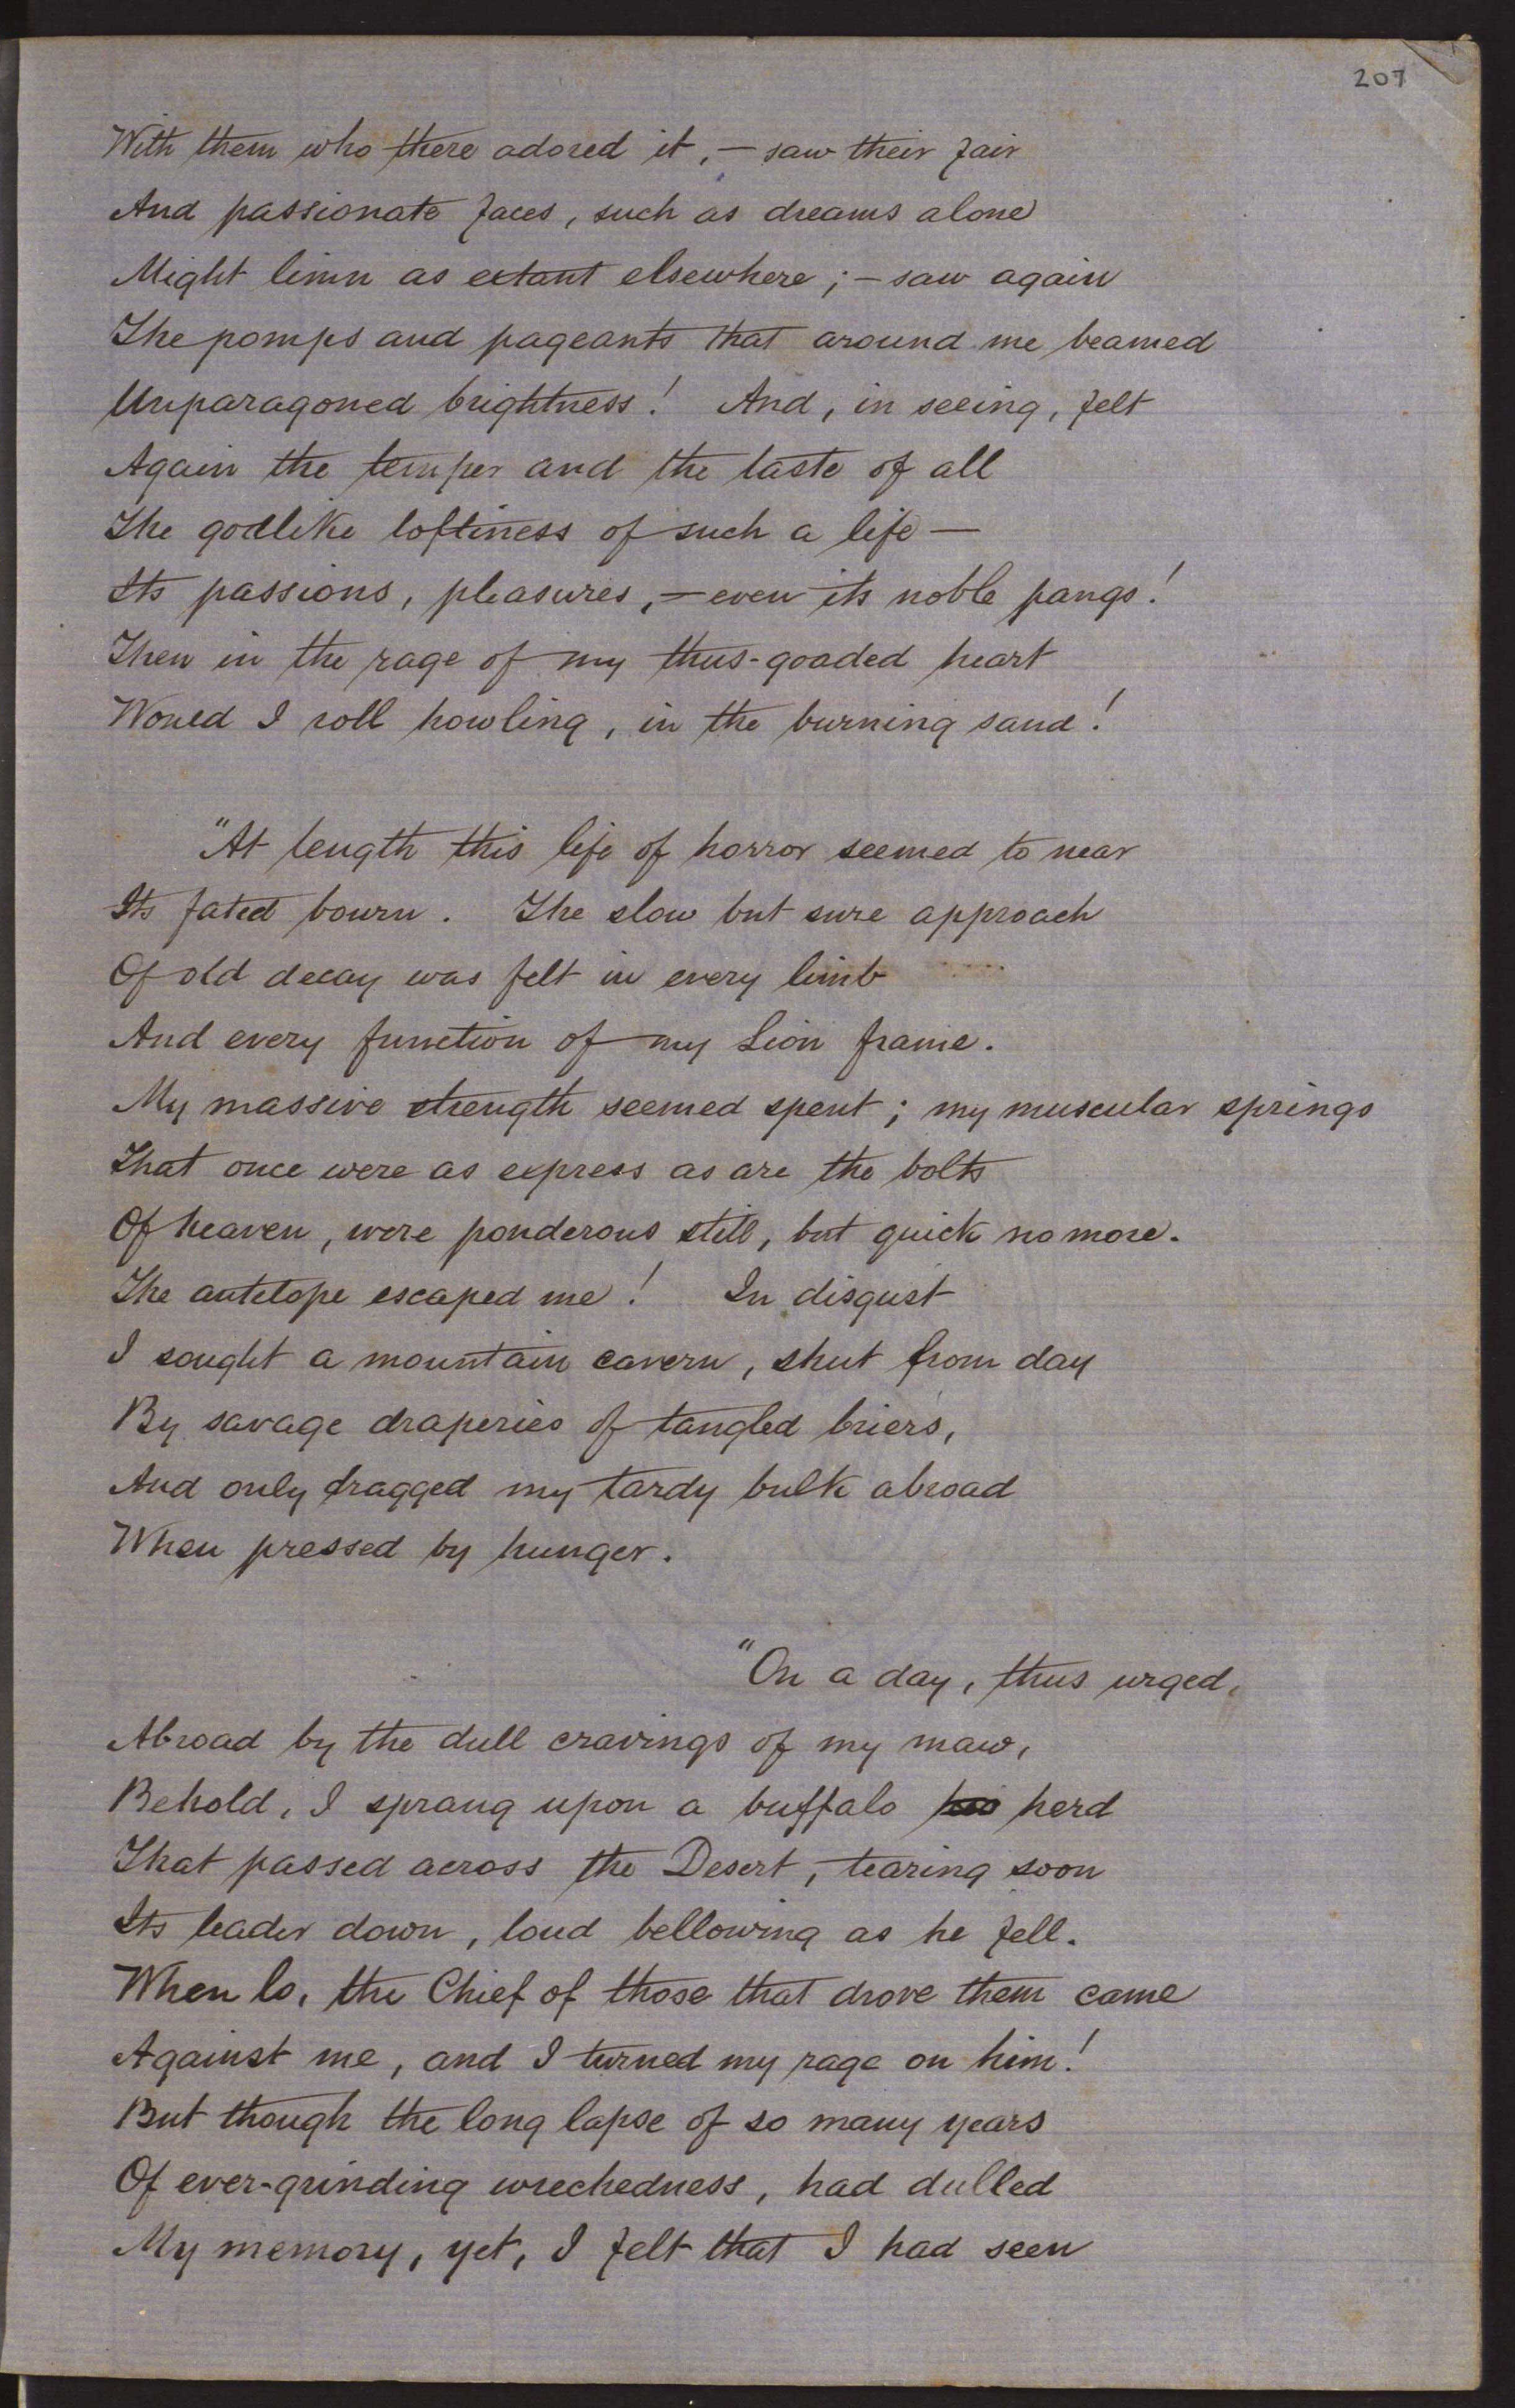 207
With them who there adored it, — saw their fair
And passionate faces, such as dreams alone
Might limn as extant elsewhere; — saw again
The pomps and pageants that around me beamed
Unparagoned brightness! And, in seeing, felt
Again the temper and the taste of all
The godlike loftiness of such a life —
Its passions, pleasures, — even its noble pangs!
Then in the rage of my thus-goaded heart
Would I roll howling, in the burning sand!
"At length this life of horror seemed to near
Its fated bourn. The slow but sure approach
Of old decay was felt in every limb
And every function of my Lion frame.
My massive strength seemed spent; my muscular springs
That once were as express as are the bolts
Of heaven, were ponderous still, but quick no more.
The antelope escaped me! In disgust
I sought a mountain cavern, shut from day
By savage draperies of tangled briers,
And only dragged my tardy bulk abroad
When pressed by hunger.
"On a day, thus urged,
Abroad by the dull cravings of my maw,
Behold, I sprang upon a buffalo herd
That passed across the Desert, tearing soon
Its leader down, loud bellowing as he fell.
When lo, the Chief of those that drove them came
Against me, and I turned my rage on him!
But though the long lapse of so many years
Of ever-grinding wrechedness, had dulled
My memory, yet, I felt that I had seen